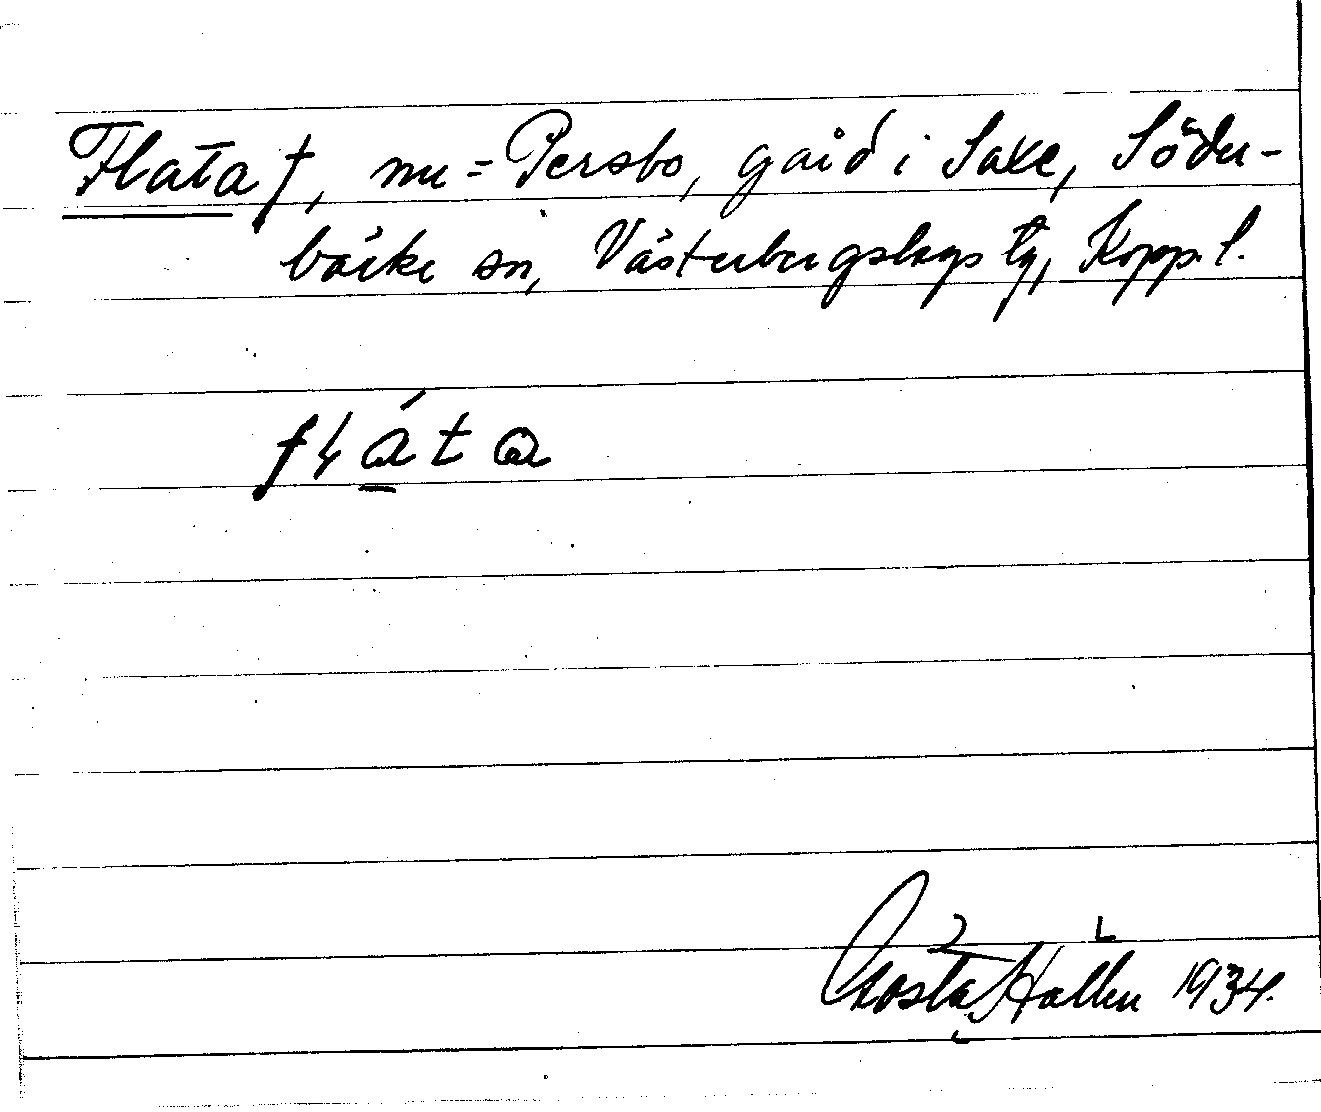 Flata †, nu = Persbo, gård i Saxe, Söder-
bärke sn, Västerbergslags tg, Kopp. l.
flata
Gösta Hallén 1934.